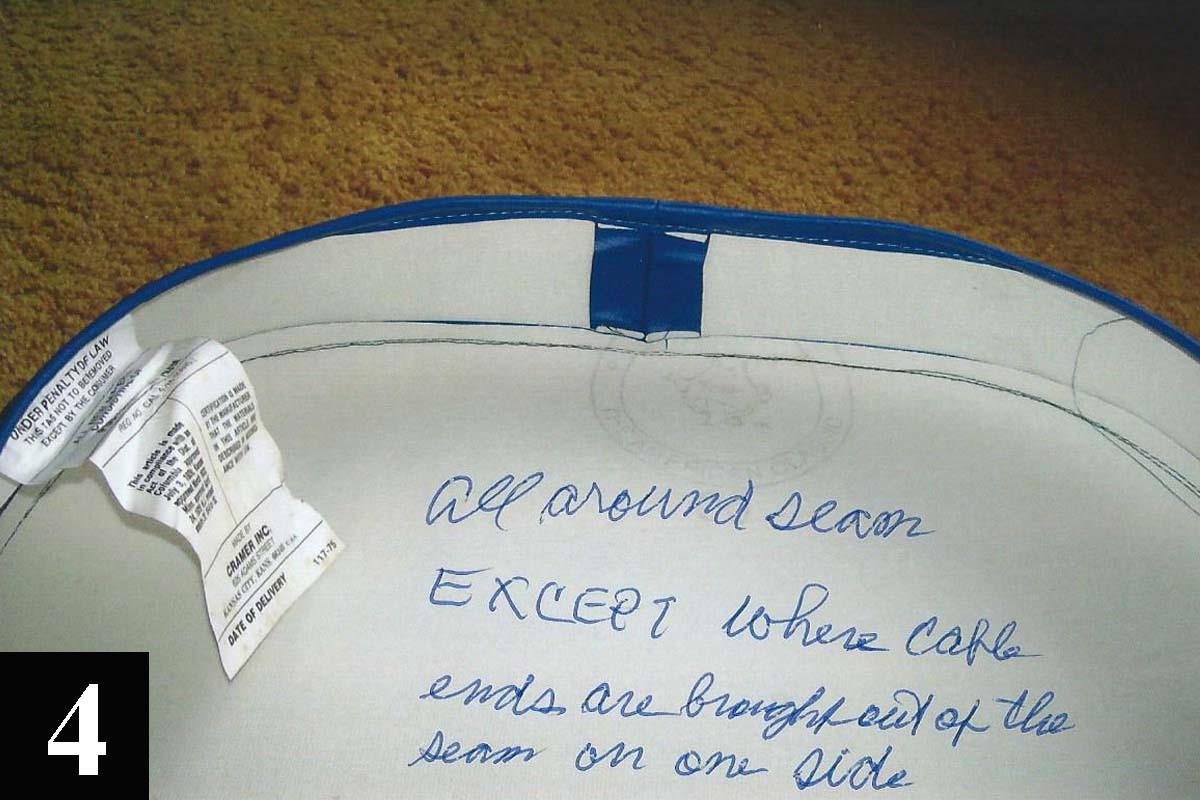 UNDER PENALTY OF LAW
THIS TAG NOT TO BE REMOVED
EXCEPT BY THE CONSUMER
REG. NO. CAL.
This article is made
in compliance with
Act of the Dist. of
Columbia
July 3,
CERTIFICATION IS MADE
BY THE MANUFACTURER
THAT THE MATERIALS
IN THIS ARTICLE ARE
DESCRIBED IN
ANCE WITH LAW.
MADE BY
CRAMER INC.
625 ADAMS STREET
KANSAS CITY, KANS. 66105 USA
DATE OF DELIVERY
117-75
all around seam
EXCEPT where cable
ends are brought out of the
seam on one side
4